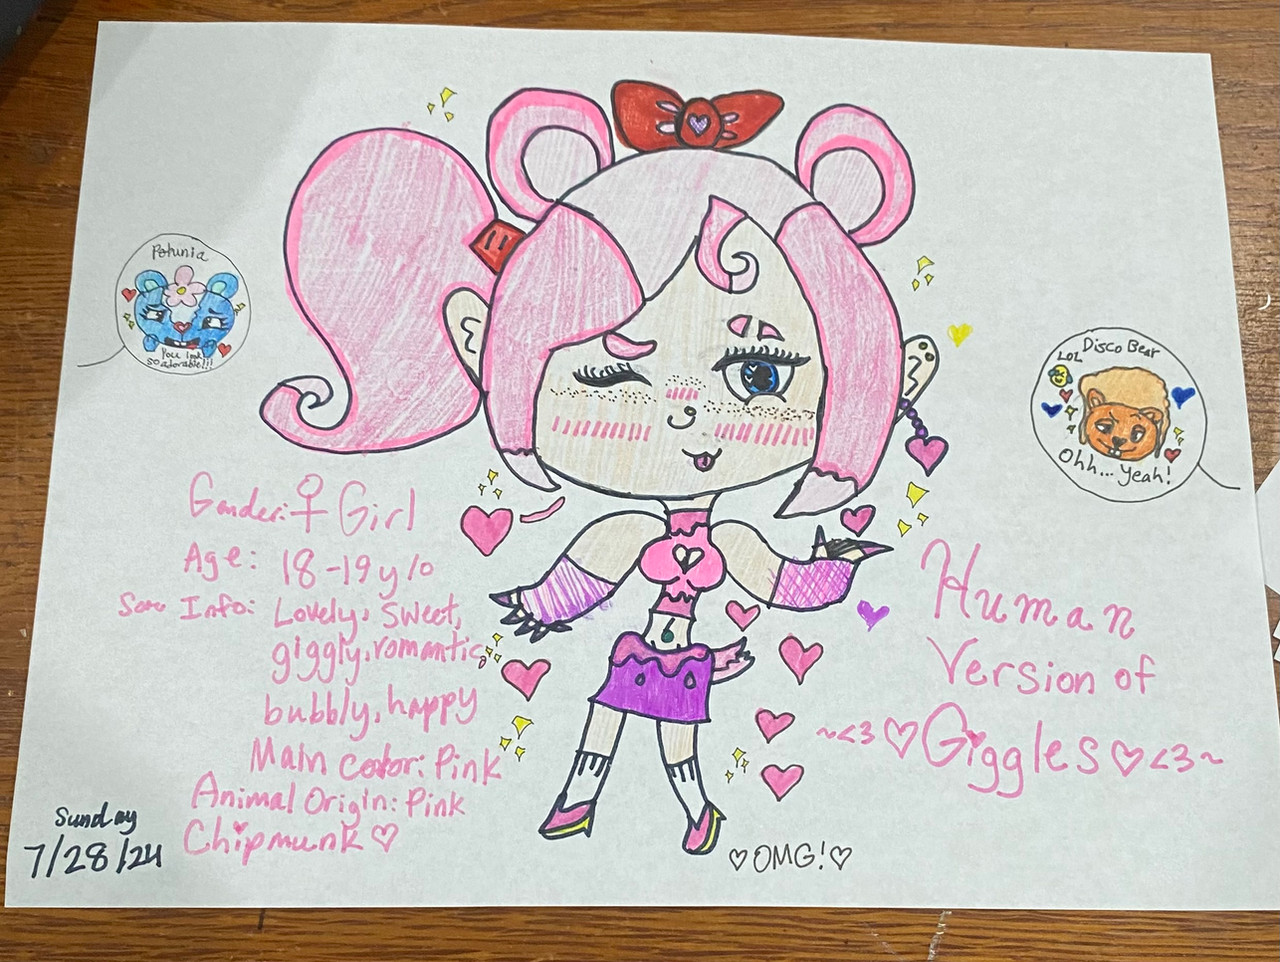 Petunia
You look
so adorable!!!
Disco Bear
LOL
Ohh... Yeah!
Gender: ♀ Girl
Age: 18-19 y/o
Some Info: Lovely, sweet,
giggly, romantic,
bubbly, happy
Main color: Pink
Animal Origin: Pink
Chipmunk ♡
Human
Version of
~<3 ♡ Giggles ♡ <3~
Sunday
7/28/24
♡ OMG! ♡